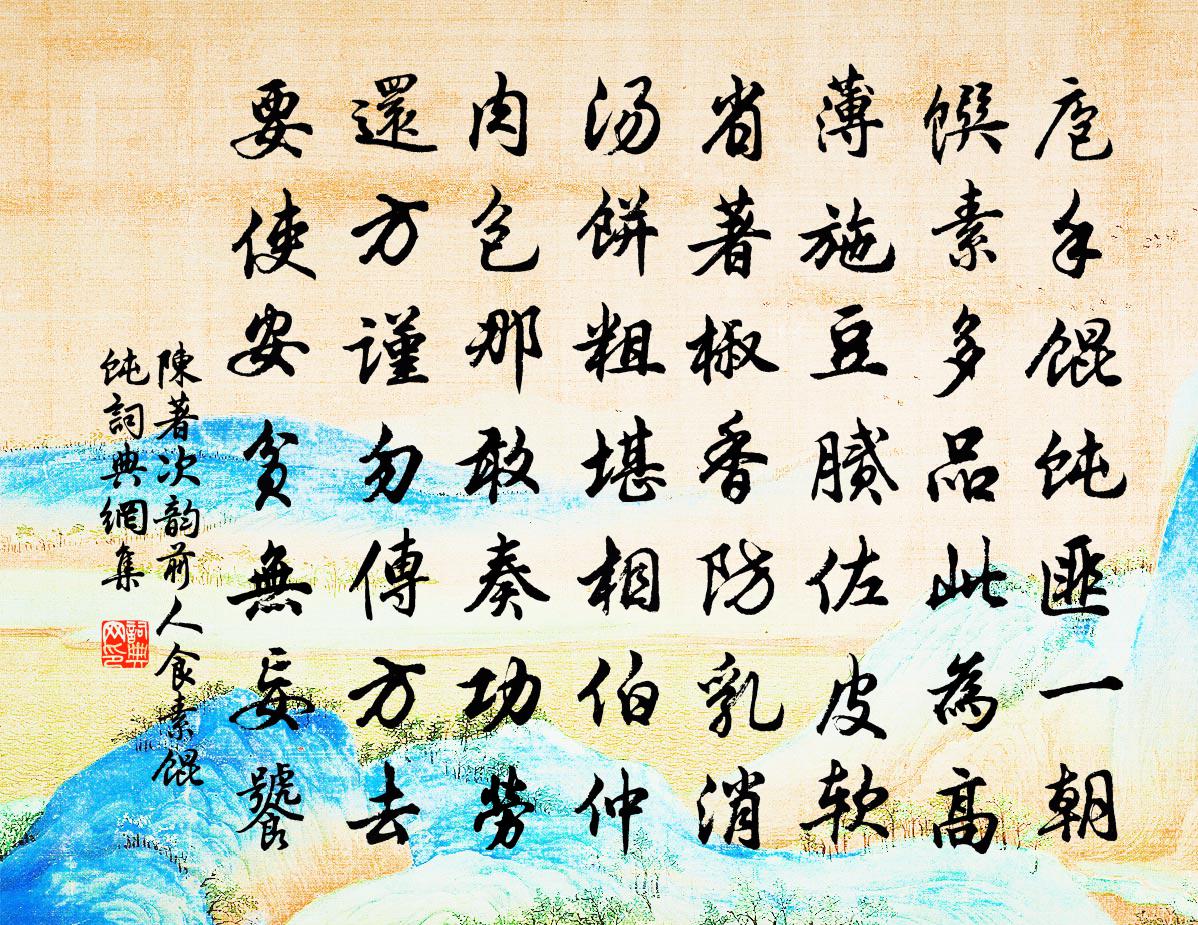 庖手餛飩匪一朝
饌素多品此為高
薄施豆膩佐皮软
省著椒香防乳消
湯餅粗堪相伯仲
肉包那敢奏功勞
還方謹勿傳方去
要使安貧無妄饕
陳著次韵前人食素餛
飩詞典網集
詞典